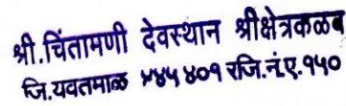 श्री.चिंतामणी देवस्थान श्रीक्षेत्रकळंब
जि.यवतमाळ ४४५४०१ रजि.नं.ए.१५०